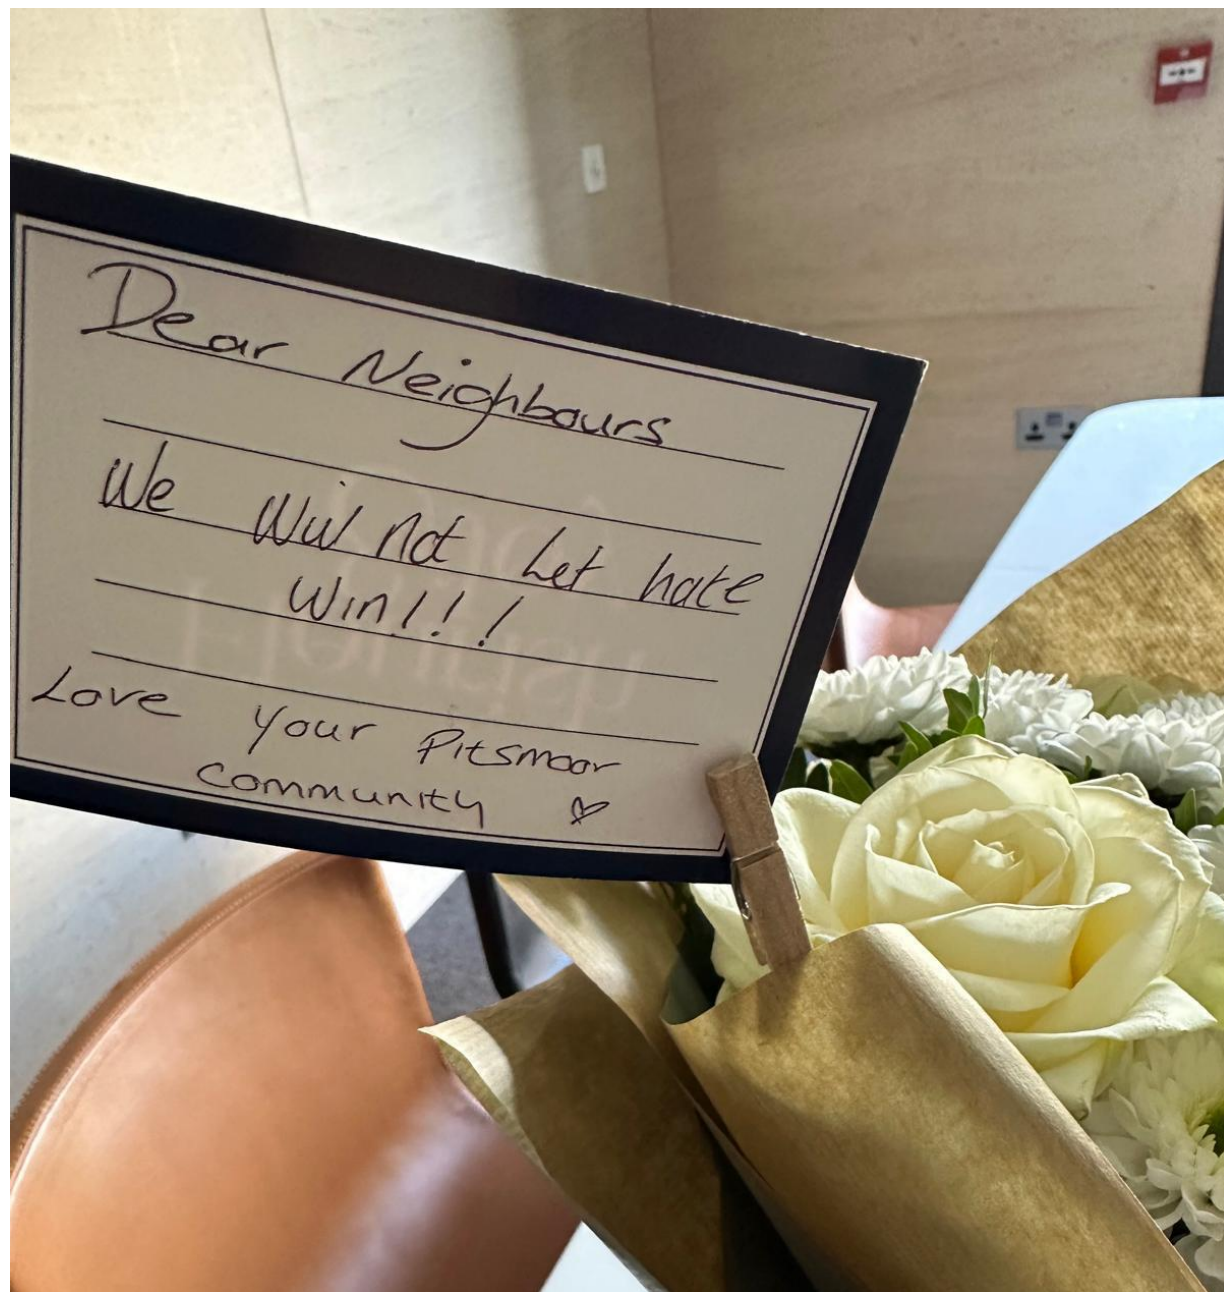 Dear Neighbours
We Will not Let hate
Win!!!
Love your Pitsmoor
community ♡